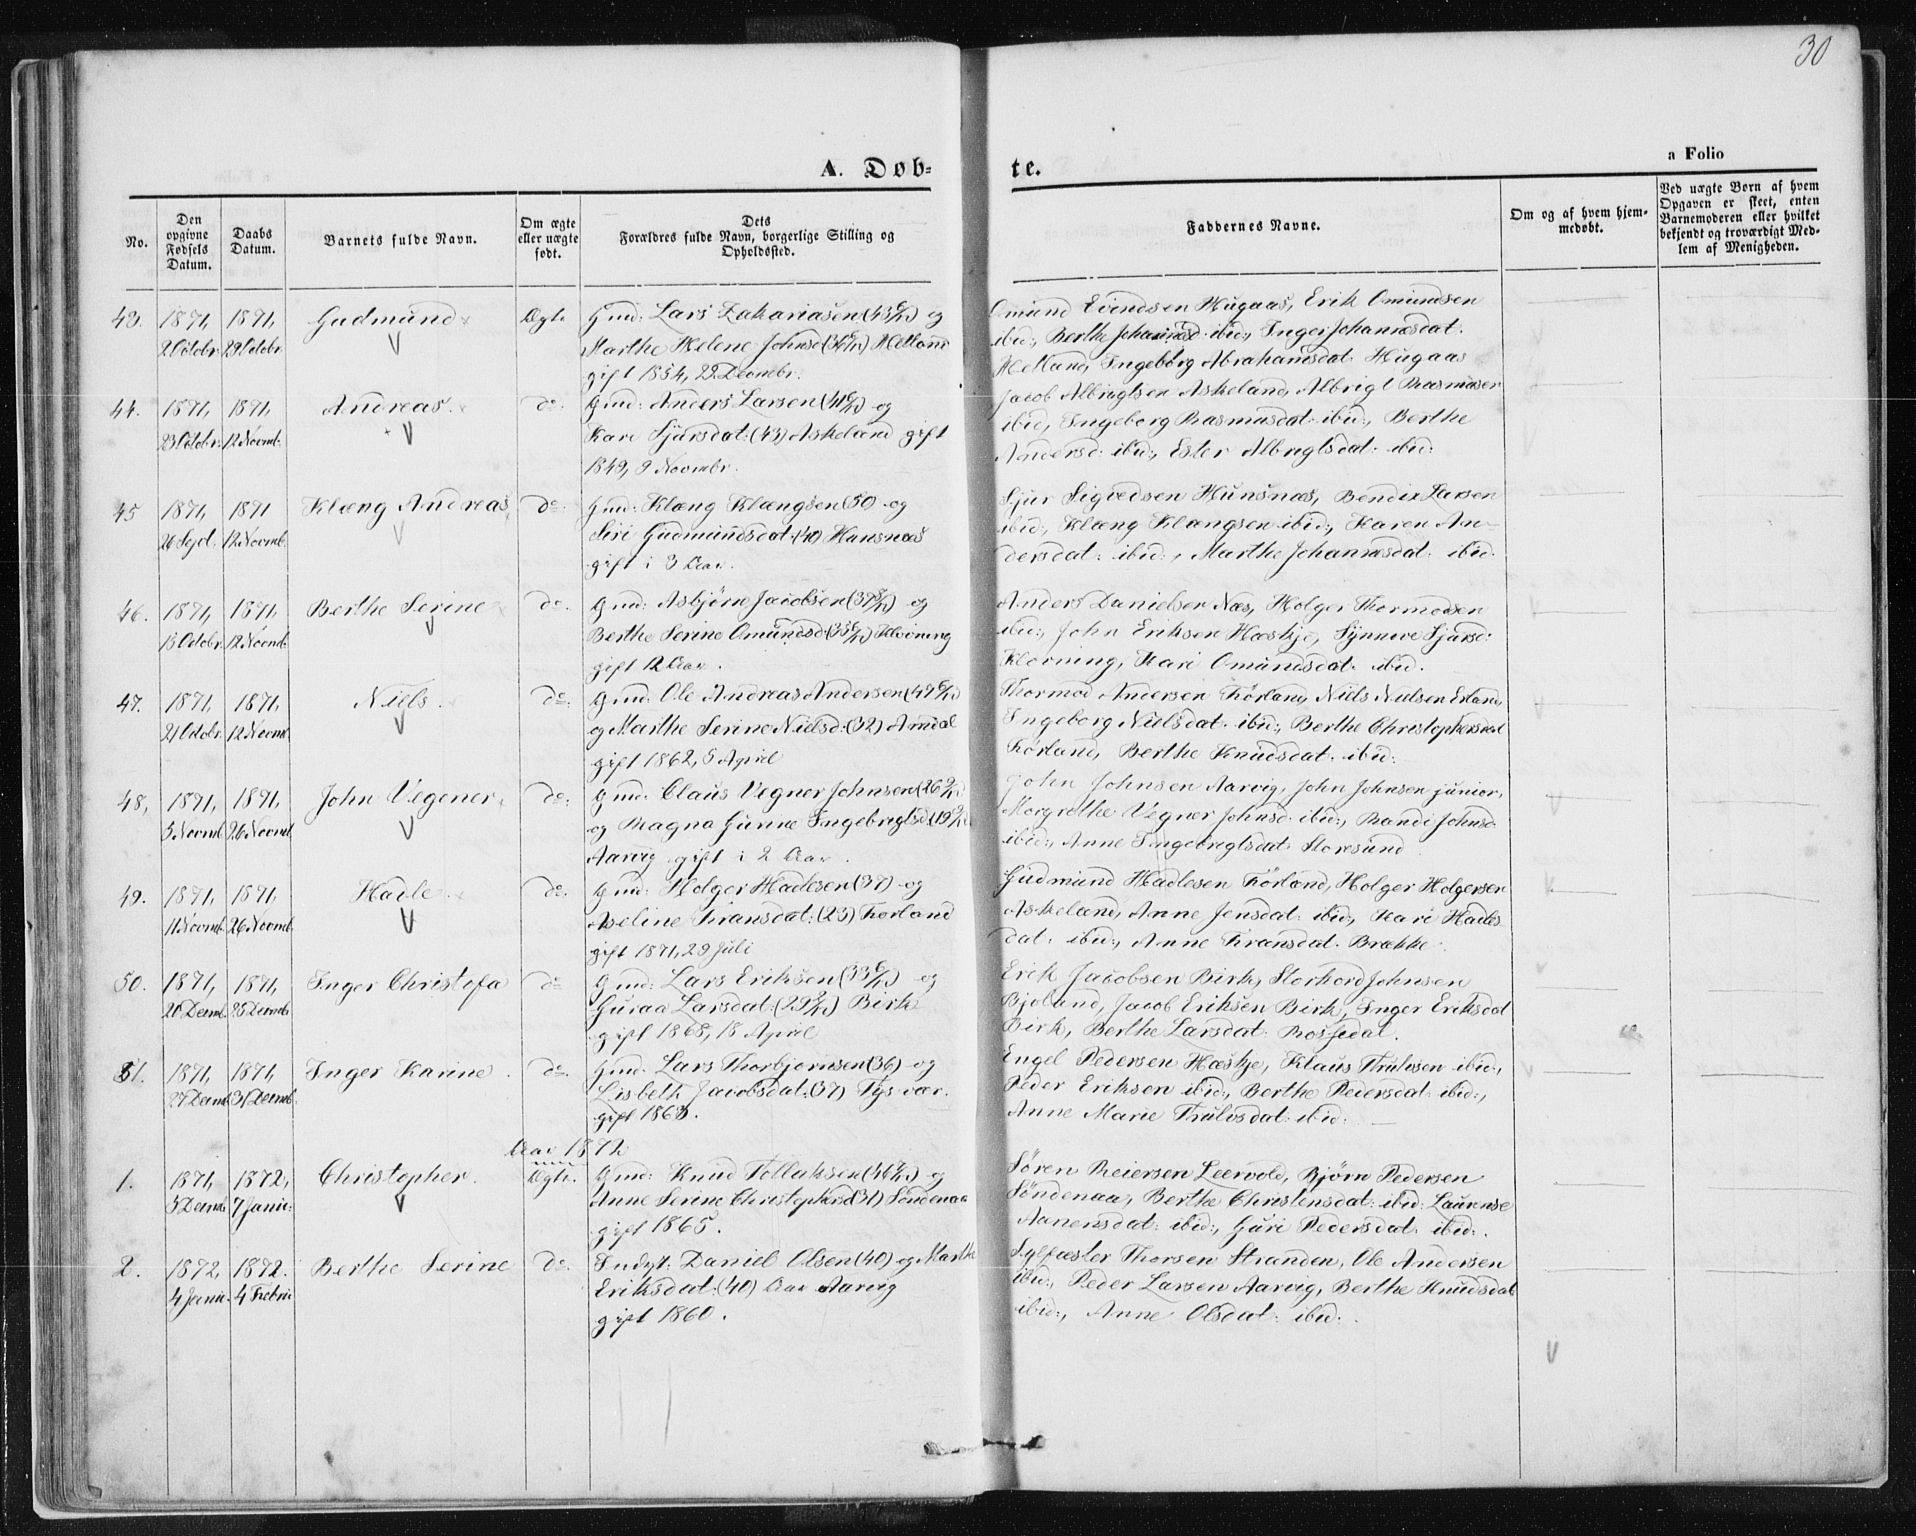 30
A. Døb-
te.
a Folio
No.
Den opgivne Fødsels Datum.
Daabs Datum.
Barnets fulde Navn.
Om ægte eller uægte født.
Dets Forældres fulde Navn, borgerlige Stilling og Opholdssted.
Faddernes Navne.
Om og af hvem hjem-
medøbt.
Ved uægte Børn af hvem
Opgaven er skeet, enten
Barnemoderen eller hvilket
bekjendt og troværdigt Med-
lem af Menigheden.
43. 1871, 1871, Gudmund Ægte Gmd: Lars Zakariasen (43 og
2 Octobr. 29 Octobr. Marthe Helene Johnsd (36 Hetland
gift 1854, 29 Decembr.
Omund Evindsen Hugaas, Erik Omundsen
ibid:, Berthe Johannesd ibid:, Inger Johannesdat:
Hetland, Ingeborg Abrahamsdat: Hugaas
44. 1871, 1871, Andreas do: Gmd: Anders Larsen (41 og
23 Octobr. 12 Novmb. Kari Sjursdat: (43) Askeland gift
1849, 9 Novembr.
Jacob Albrigtsen Askeland, Albrigt Rasmusen
ibid, Ingeborg Rasmusdat: ibid:, Berthe
Andersd: ibid:, Ester Albrigtsdat: ibid:
45 1871, 1871 Klæng Andreas do: Gmd: Klæng Klængsen (50 og
26 Sept. 12 Novmb. Siri Gudmundsdat: (40) Hunsnæs
gift i 3 Aar.
Sjur Sigvedsen Hunsnæs, Bendix Larsen
ibid:, Klæng Klængsen ibid:, Karen An-
dersdat: ibid:, Marthe Johannesdat: ibid:
46. 1871, 1871, Berthe Serine do. Gmd: Asbjørn Jacobsen (37 og
13 Octobr. 12 Novmb. Berthe Serine Omundsd (35 Klovning
gift 12 Aar.
Anders Danielsen Næs, Holger Thormodsen
ibid:, John Eriksen Hæskje, Synneve Sjursd:
Klovning, Kari Omundsdat: ibid.
47. 1871, 1871, Niels do: Gmd: Ole Andreas Andersen (49
21 Octobr. 12 Novmb. og Marthe Serine Nielsd: (32) Amdal
gift 1862, 5 April
Thormod Andersen Førland, Niels Nielsen Erland
Ingeborg Nielsdat: ibid:, Berthe Christophersdat
Førland, Berthe Knudsdat: ibid:
48, 1871, 1871, John Vegener do: Gmd: Claus Vegner Johnsen (26
5 Novmb. 26 Novmb. og Ragna Gunne Ingebrigtsd: (19
Aarvig gift i 2 Aar.
John Johnsen Aarvig, John Johnsen junior,
Margrethe Vegner Johnsd: ibid:, Randi Johnsd:
ibid:, Anne Ingebrigtsdat: Storesund
49. 1871, 1871, Hadle do: Gmd: Holger Hadlesen (37) og
11 Novmb. 26 Novmb. Aseline Fransdat: (23) Førland
gift 1871, 29 Juli
Gudmund Hadlesen Førland, Holger Holgersen
Askeland, Anne Jensdat: ibid:, Kari Hadles-
dat: ibid:, Anne Fransdat: Brække.
50. 1871, 1871, Inger Christofa do Gmd: Lars Eriksen (33 og
20 Decmb. 25 Decmb. Guraa Larsdat: (29 Birk
gift 1868, 18 April
Erik Jacobsen Birk, Storkord Johnsen
Bjoland, Jacob Eriksen Birk, Inger Eriksdat
Birk, Berthe Larsdat: Rossedal.
51. 1871, 1871, Inger Karine do. Gmd. Lars Thorbjørnsen (36) og
27 Decmb. 31 Decmb. Lisbeth Jacobsdat: (37) Tysvær.
gift 1863.
Engel Pedersen Hæskje, Klaus Thulesen ibid:,
Peder Eriksen ibid:, Berthe Pedersdat: ibid:,
Anne Marie Thulesdat: ibid:
Aar 1872
1. 1871, 1872, Christopher. Ægte. Gmd: Knud Tollaksen (46 og
5 Decmb. 7 Janu: Anne Serine Christophersd (31) Søndenaa
gift 1865.
Søren Reiersen Leervold, Bjørn Pedersen
Søndenaa, Berthe Christensdat: ibid: Laurense
Aanensdat: ibid:, Guri Pedersdat: ibid:.
2. 1872, 1872. Berthe Serine do. Indst: Daniel Olsen (40) og Marthe
4 Janu. 4 Febru Eriksdat: (40) Aar Aarvig
gift 1860.
Sylfæster Thorsen Stranden, Ole Andersen
ibid:, Peder Larsen Aarvig, Berthe Knudsdat
ibid:, Anne Olsdat: ibid:.